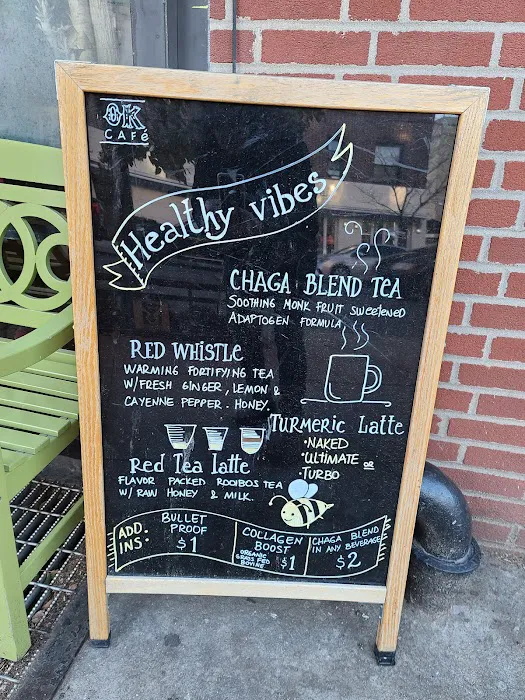 OK
CAFé
Healthy vibes
CHAGA BLEND TEA
SOOTHING MONK FRUIT SWEETENED
ADAPTOGEN FORMULA
RED WHISTLE
WARMING FORTIFYING TEA
W/FRESH GINGER, LEMON &
CAYENNE PEPPER. HONEY.
TURMERIC LATTE
•NAKED
•ULTIMATE OR
•TURBO
Red Tea latte
FLAVOR PACKED ROOIBOS TEA
W/ RAW HONEY & MILK.
ADD.
INS:
BULLET
PROOF
$1
COLLAGEN
BOOST
ORGANIC
GRASS FED
BOVINE
$1
CHAGA BLEND
IN ANY BEVERAGE
$2